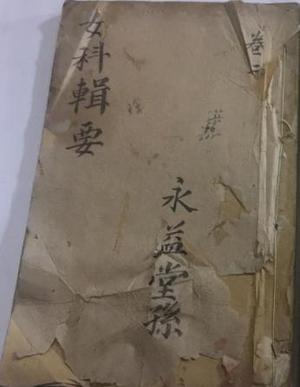 卷二
永益堂孫
女科輯要